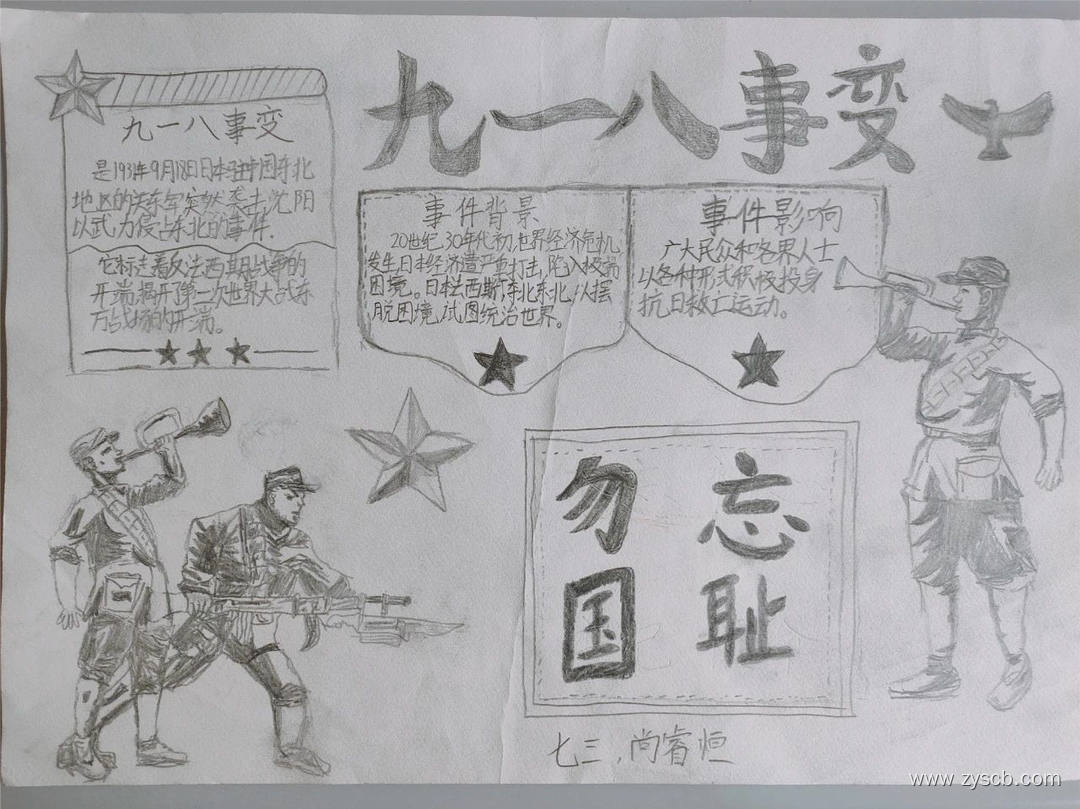 九一八事变
九一八事变
是1931年9月18日日本驻中国东北
地区的关东军突然袭击沈阳
以武力侵占东北的事件.
它标志着反法西斯战争的
开端,揭开了第二次世界大战东
方战场的开端。
事件背景
20世纪30年代初,世界经济危机
发生,日本经济遭严重打击,陷入极端
困境。日本法西斯 东北东北,以摆
脱困境,试图统治世界。
事件影响
广大民众和各界人士
以各种形式积极投身
抗日救亡运动。
勿 忘
国 耻
七三,尚睿恒
www.zyscb.com